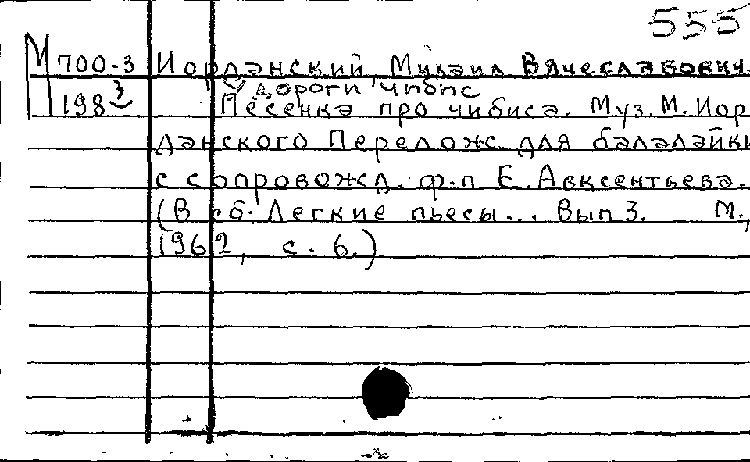 555
М 700-3 Иорданский, Михаил Вячеславович.
У дороги чибис
198 3 Песенка про чибиса. Муз. М. Иор
данского Перелож. для балалайки
с сопровожд. ф-п Е. Авксентьева.
(В сб. Легкие пьесы... Вып 3. М.,
1962, с. 6.)